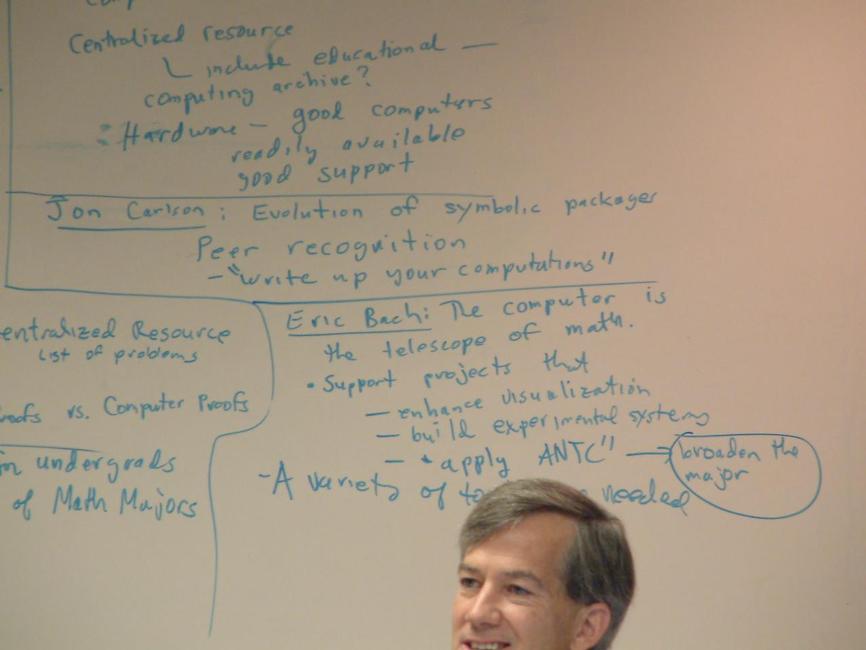 Centralized resource
include educational —
computing archive?
: Hardware – good computers
readily available
good support
Jon Carlson: Evolution of symbolic packages
Peer recognition
– "write up your computations"
entralized Resource
List of problems
oofs vs. Computer Proofs
undergrads
of Math Majors
Eric Bach: The computer is
the telescope of math.
• Support projects that
— enhance visualization
— build experimental systems
— "apply ANTC" → broaden the
major
– A variety of needed